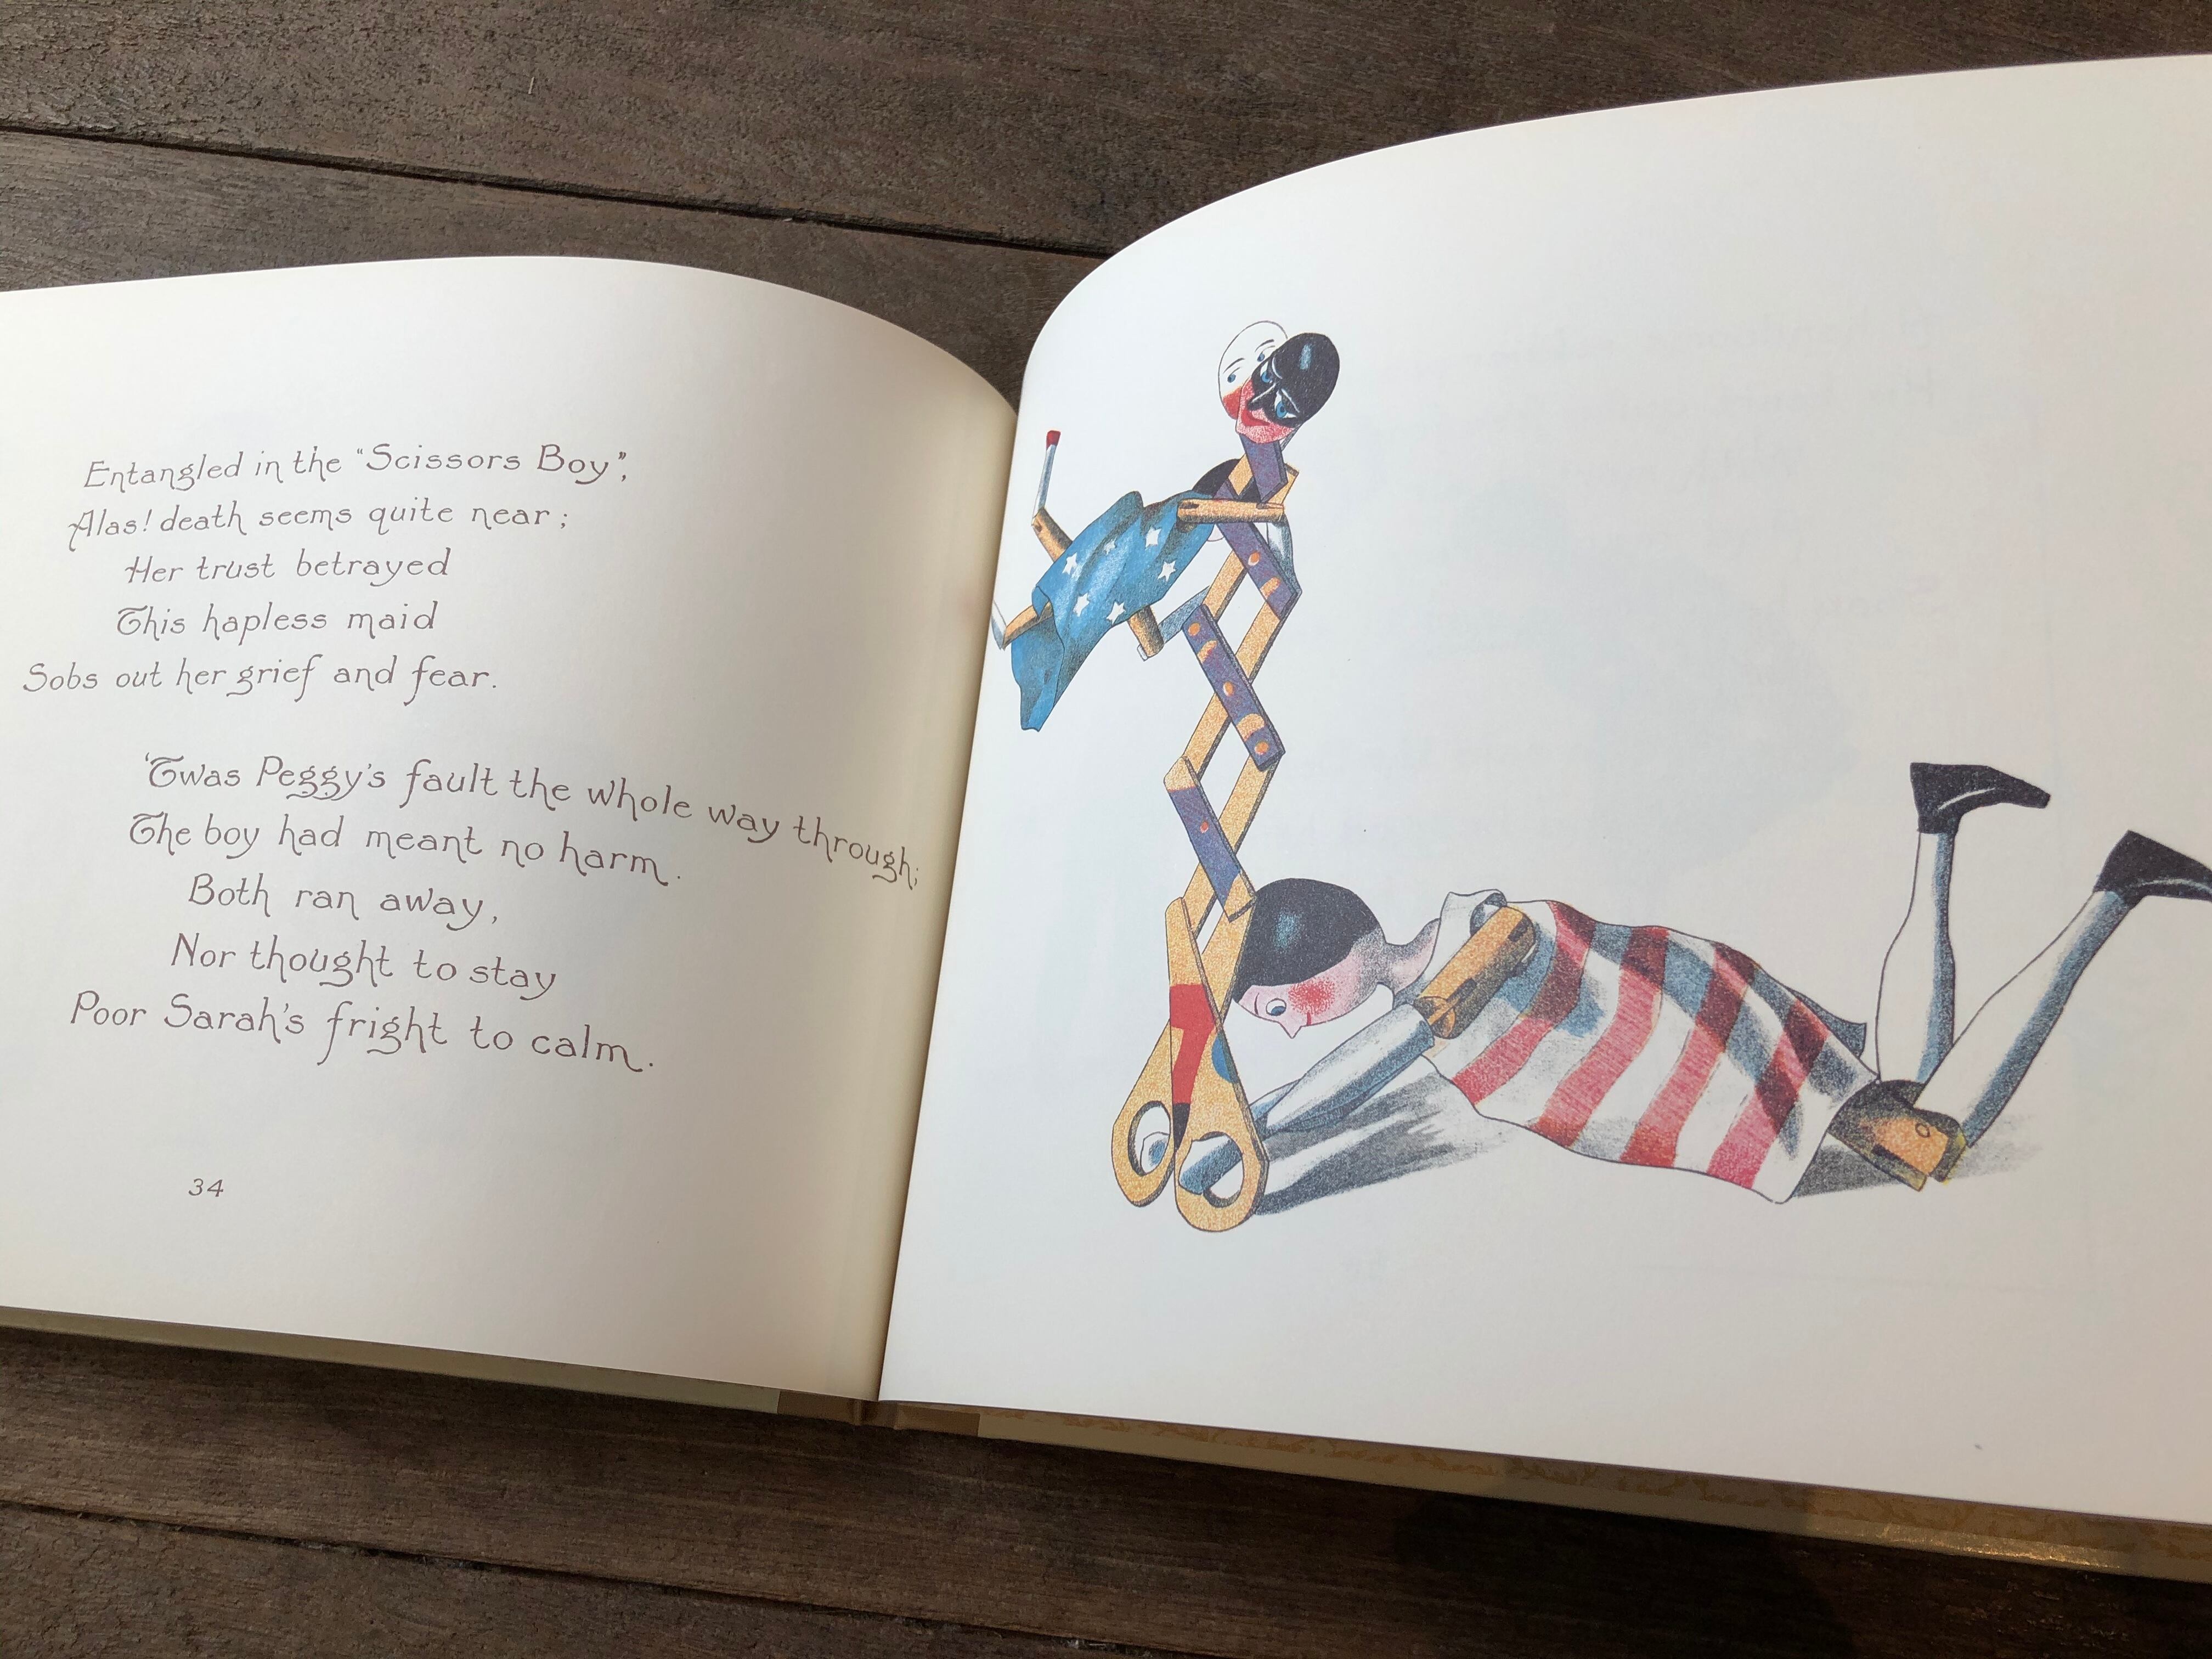 Entangled in the "Scissors Boy",
Alas! death seems quite near;
Her trust betrayed
This hapless maid
Sobs out her grief and fear.
'Twas Peggy's fault the whole way through;
The boy had meant no harm.
Both ran away,
Nor thought to stay
Poor Sarah's fright to calm.
34